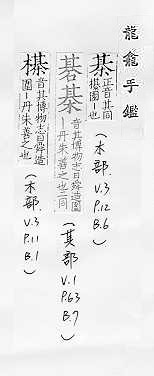 龍龕手鑑
棊 正音其同
撘圍｜也
(木部 V.3 P.12 B.6)
碁棊 音其博物志曰舜造圍
｜丹朱善之也二同
(其部 V.1 P.63 B.7)
櫀 音其博物志曰舜造
圍｜丹朱善之也
(木部 V.3 P.11 B.1)